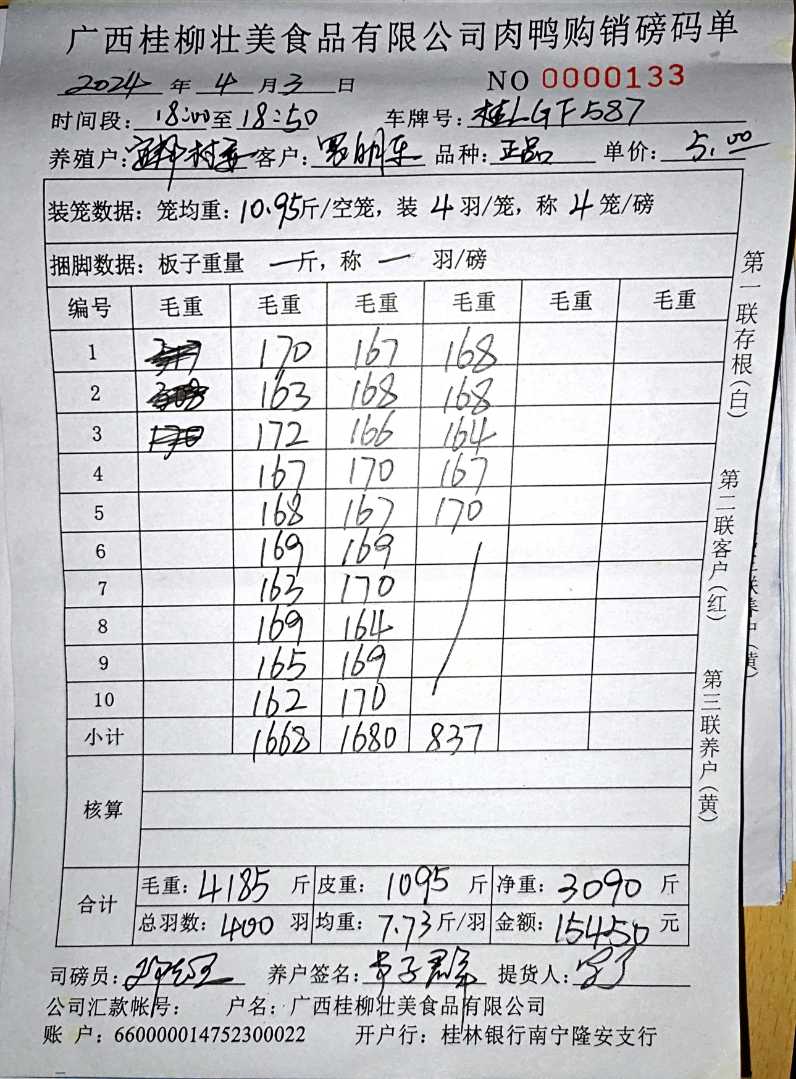 广西桂柳壮美食品有限公司肉鸭购销磅码单
2024 年 4 月 3 日 NO 0000133
时间段: 18:00 至 18:50 车牌号: 桂LGF587
养殖户: 客户: 罗明东 品种: 正品 单价: 5.00
装笼数据: 笼均重: 10.95 斤/空笼, 装 4 羽/笼, 称 4 笼/磅
捆脚数据: 板子重量 一 斤, 称 一 羽/磅
编号 毛重 毛重 毛重 毛重 毛重 毛重
1 170 167 168
2 163 168 168
3 172 166 164
4 167 170 167
5 168 167 170
6 169 169
7 163 170
8 169 164
9 165 169
10 162 170
小计 1668 1680 837
核算
合计
毛重: 4185 斤 皮重: 1095 斤 净重: 3090 斤
总羽数: 400 羽 均重: 7.73 斤/羽 金额: 15450 元
司磅员: 养户签名: 提货人:
公司汇款帐号: 户名: 广西桂柳壮美食品有限公司
账 户: 660000014752300022 开户行: 桂林银行南宁隆安支行
第一联存根(白)
第二联客户(红)
第三联养户(黄)